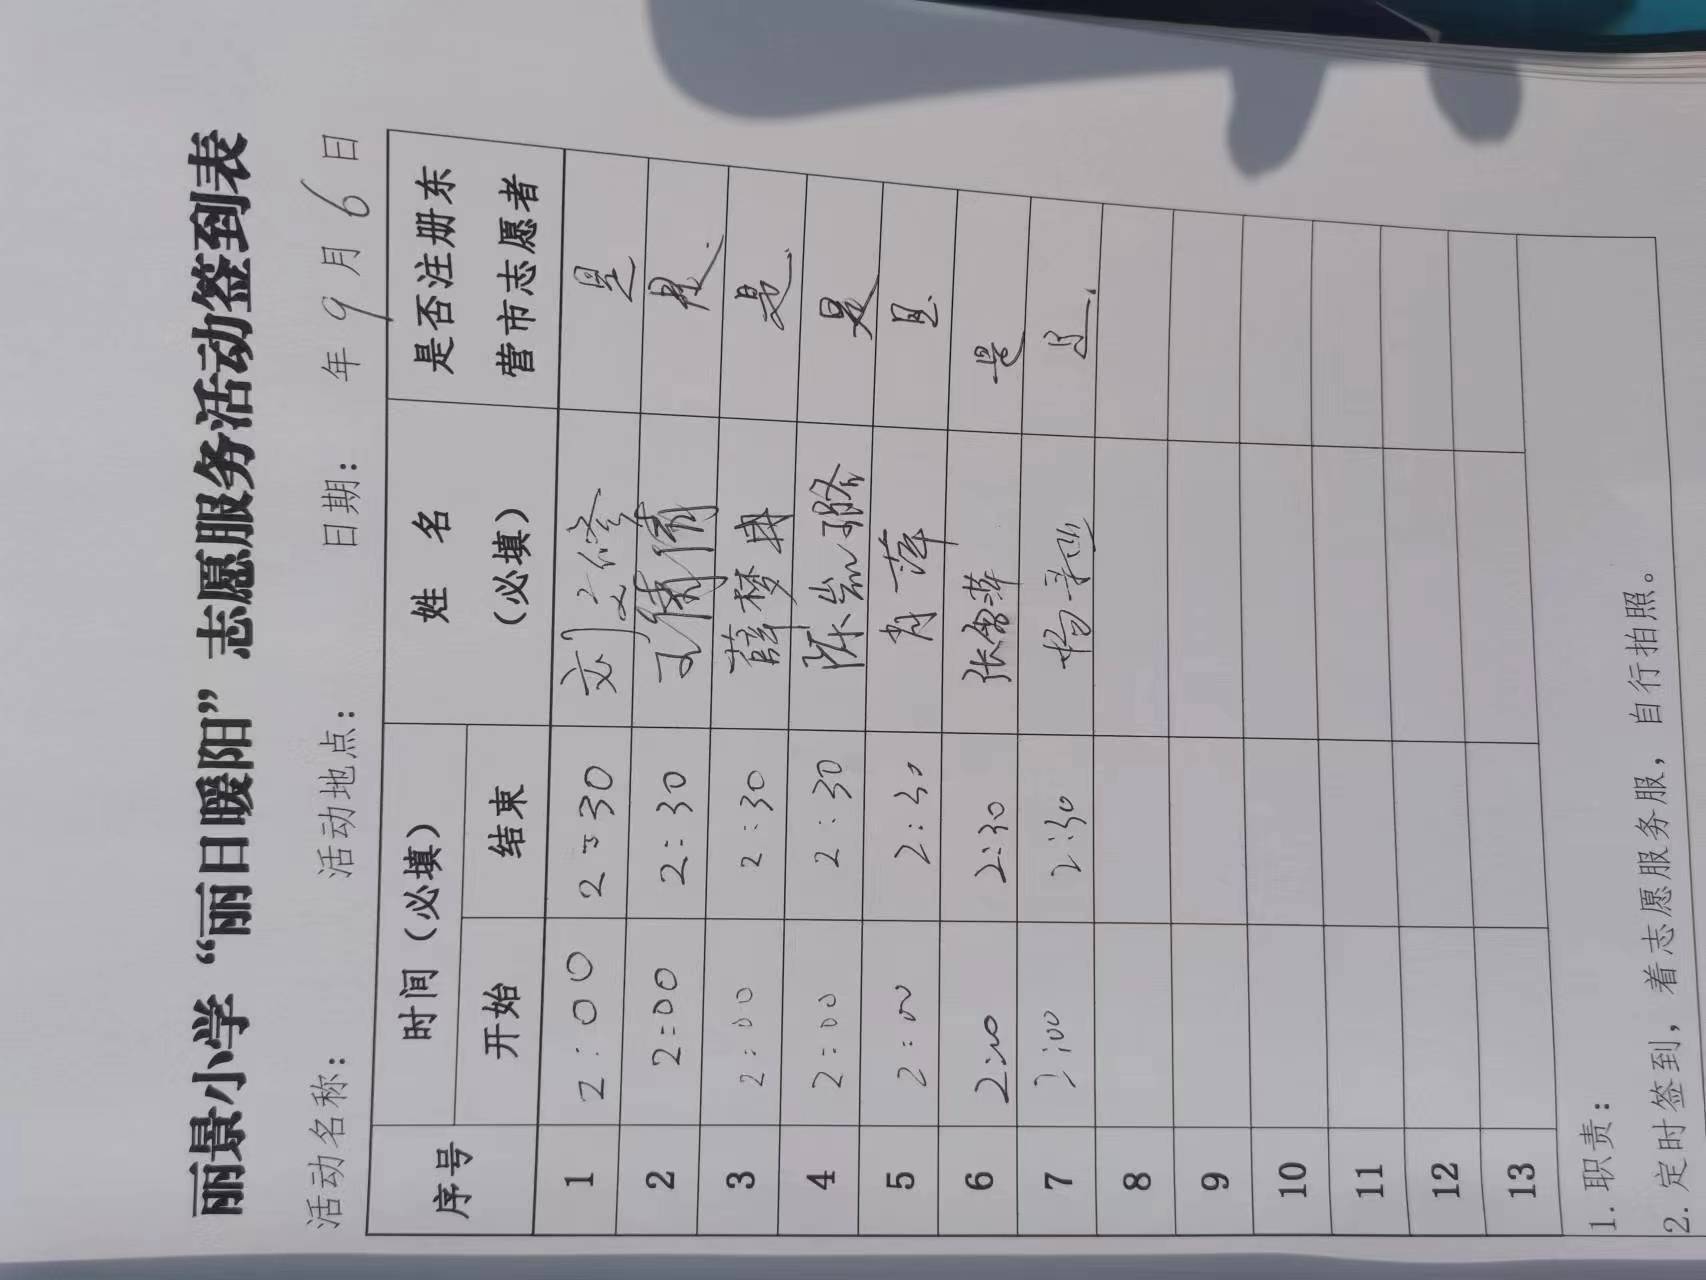 丽景小学“丽日暖阳”志愿服务活动签到表
活动名称： 活动地点： 日期： 年 9 月 6 日
序号 时间（必填） 姓 名（必填） 是否注册东营市志愿者
开始 结束
1 2:00 2:30 是
2 2:00 2:30 是
3 2:00 2:30 薛梦冉 是
4 2:00 2:30 是
5 2:00 2:30 肖萍 是
6 2:00 2:30 是
7 2:00 2:30 是
8
9
10
11
12
13
1. 职责：
2. 定时签到，着志愿服务服，自行拍照。